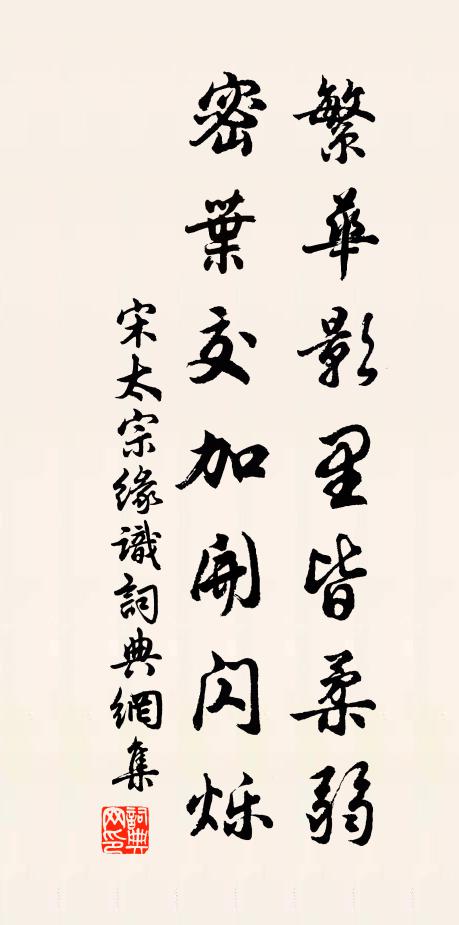 繁華影里皆柔弱
密葉交加開閃烁
宋太宗緣識詞典網集
詞典网印